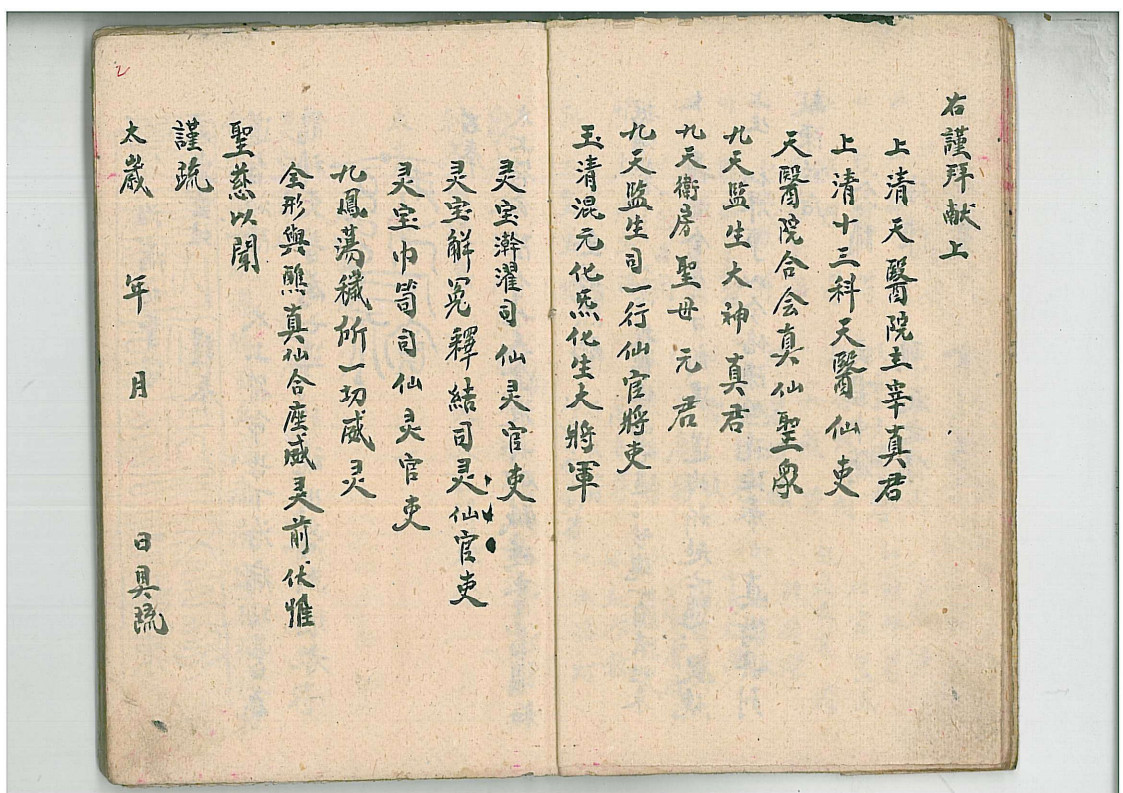 右謹拜献上
上清天醫院主宰真君
上清十三科天醫仙吏
天醫院合会真仙聖众
九天監生大神真君
九天衛房聖母元君
九天監生司一行仙官將吏
玉清混元化炁化生大將軍
灵宝澣濯司仙灵官吏
灵宝解冤釋結司灵仙官吏
灵宝巾笥司仙灵官吏
九鳳蕩穢所一切威灵
全形與真仙合座威灵前伏惟
聖慈以聞
謹疏
太歲 年 月 日具疏
2